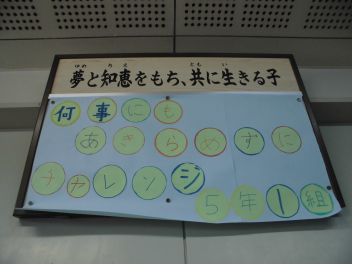 夢と知恵をもち、共に生きる子
ゆめ ちえ とも い
何事にも
あきらめずに
チャレンジ
5年1組